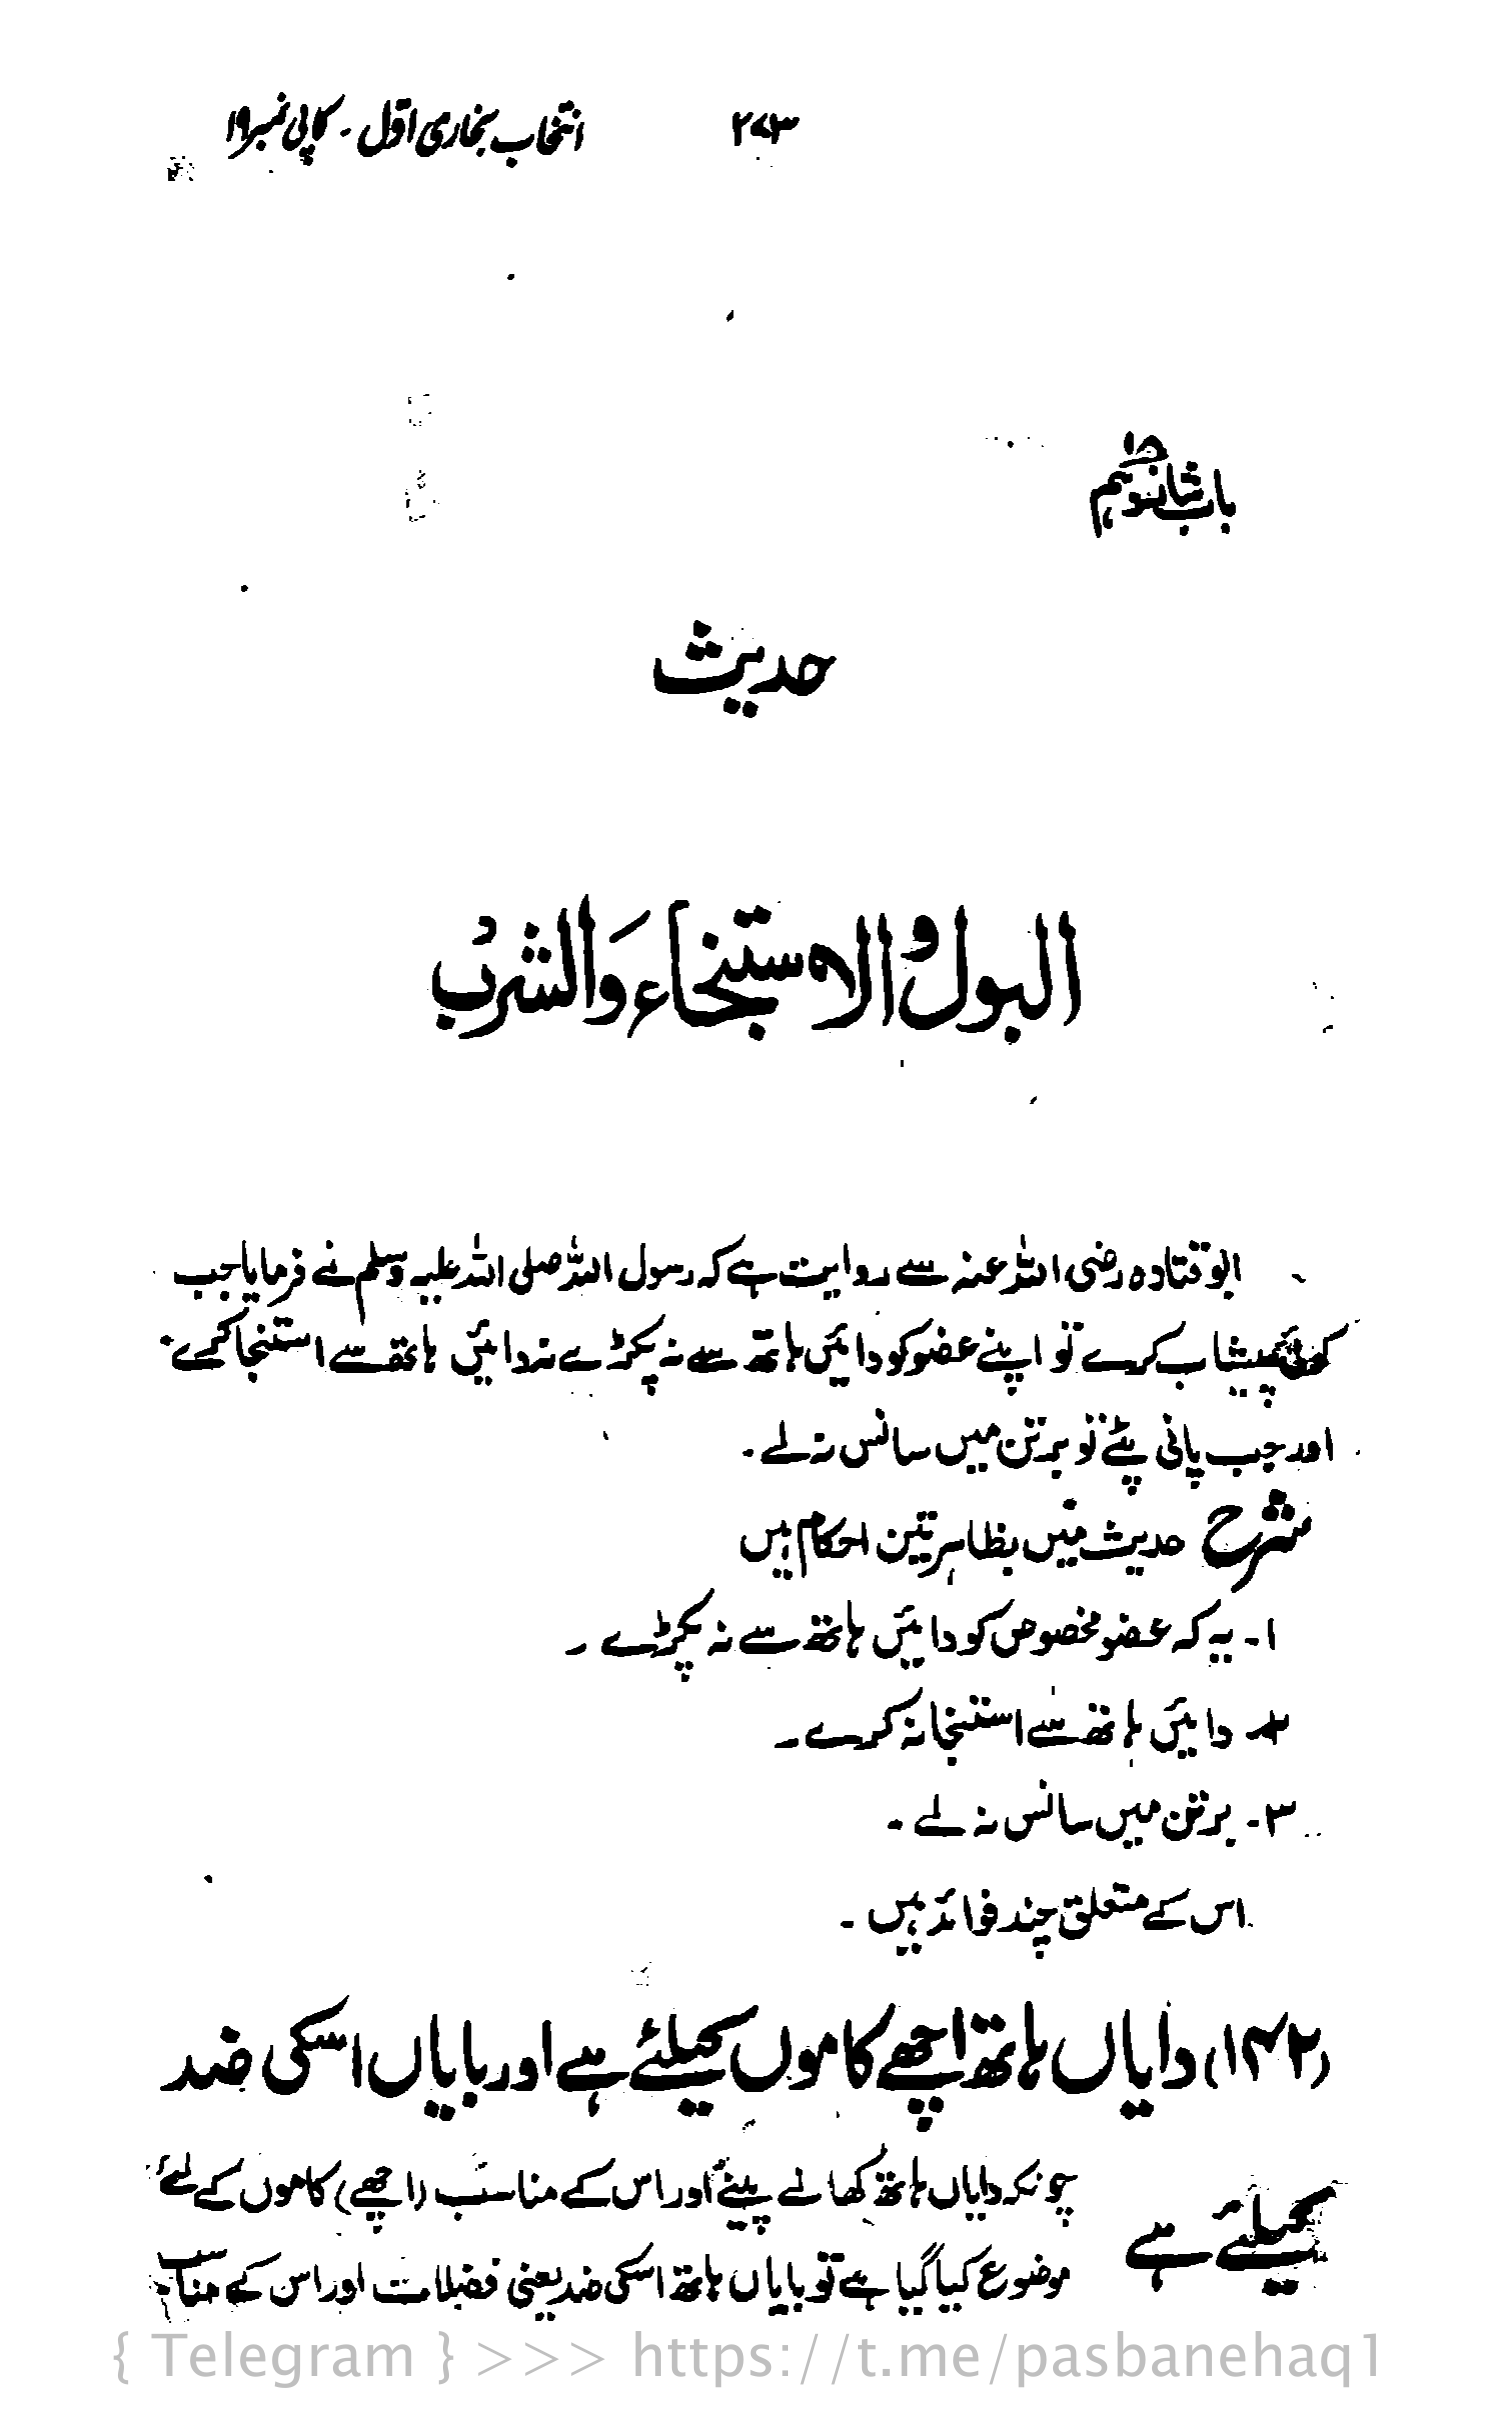 ۲۷۳ انتخاب بخاری اوّل - کاپی نمبر ۱۹
باب شانزدہم
حدیث
البول والاستنجاء والشرب
ابو قتادہ رضی اللہ عنہ سے روایت ہے کہ رسول اللہ صلی اللہ علیہ وسلم نے فرمایا جب
کوئی پیشاب کرے تو اپنے عضو کو دائیں ہاتھ سے نہ پکڑے نہ دائیں ہاتھ سے استنجا کرے
اور جب پانی پئے تو برتن میں سانس نہ لے ۔
شرح حدیث میں بظاہر تین احکام ہیں
۱- یہ کہ عضو مخصوص کو دائیں ہاتھ سے نہ پکڑے ۔
۲- دائیں ہاتھ سے استنجا نہ کرے ۔
۳- برتن میں سانس نہ لے ۔
اس کے متعلق چند فوائد ہیں ۔
(۱۴۲) دایاں ہاتھ اچھے کاموں کیلئے ہے اور بایاں اسکی ضد
کیلئے ہے
چونکہ دایاں ہاتھ کھانے پینے اور اس کے مناسب (اچھے) کاموں کے لئے
موضوع کیا گیا ہے تو بایاں ہاتھ اسکی ضد یعنی فضلات اور اس کے مناسب
{ Telegram } >>> https://t.me/pasbanehaq1